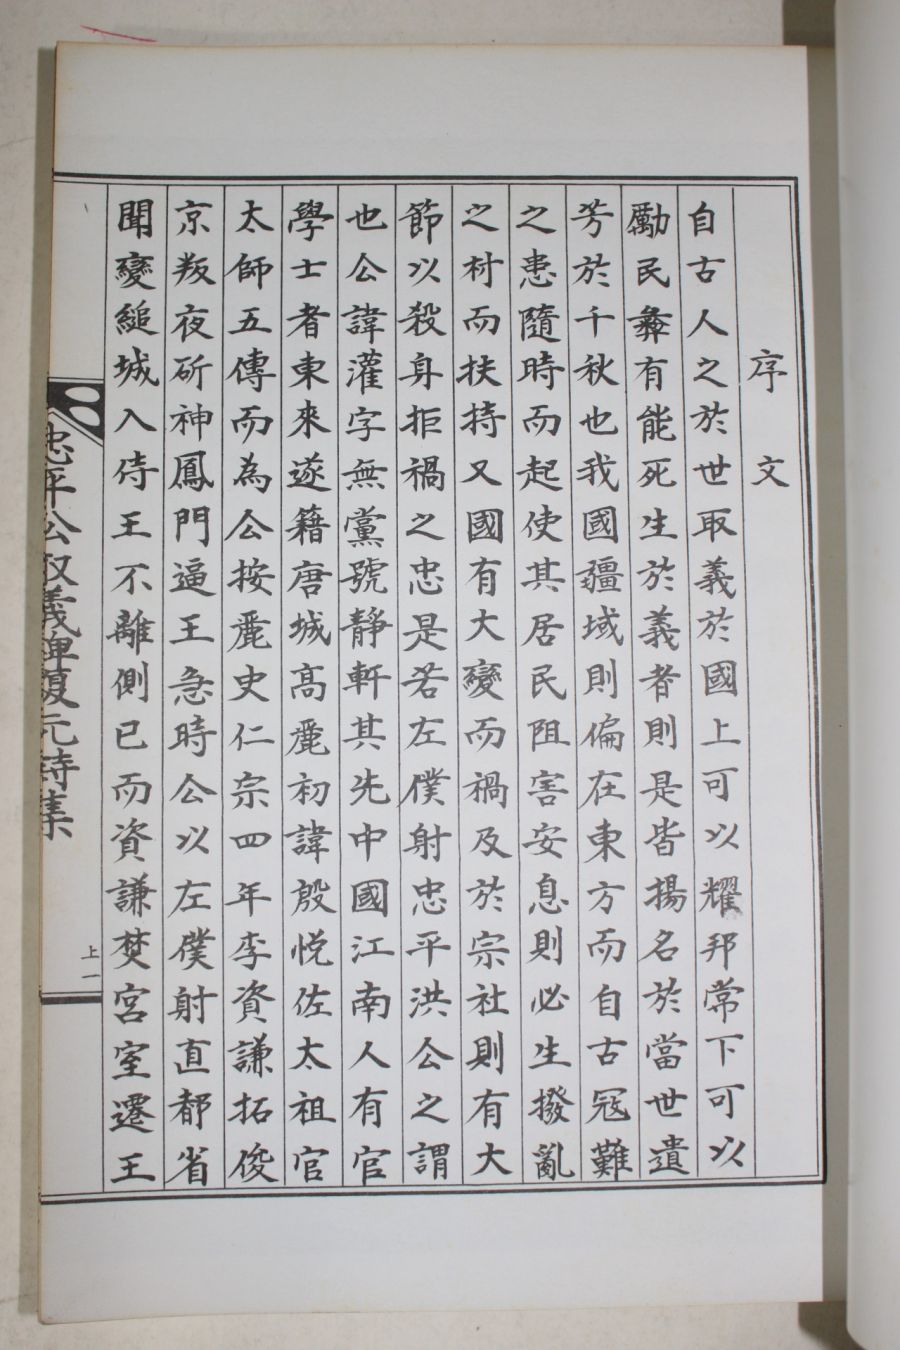 序文
自古人之於世取義於國上可以耀邦常下可以
勵民彝有能死生於義者則是皆揚名於當世遺
芳於千秋也我國疆域則偏在東方而自古冠難
之患隨時而起使其居民阻害安息則必生撥亂
之材而扶持又國有大變而禍及於宗社則有大
節以殺身拒禍之忠是若左僕射忠平洪公之謂
也公諱灌字無黨號靜軒其先中國江南人有官
學士者東來遂籍唐城高麗初諱殷悅佐太祖官
太師五傳而為公按麗史仁宗四年李資謙拓俊
京叛夜斫神鳳門逼王急時公以左僕射直都省
聞變縋城入侍王不離側已而資謙焚宮室遷王
忠平公取義碑復元詩集
上一